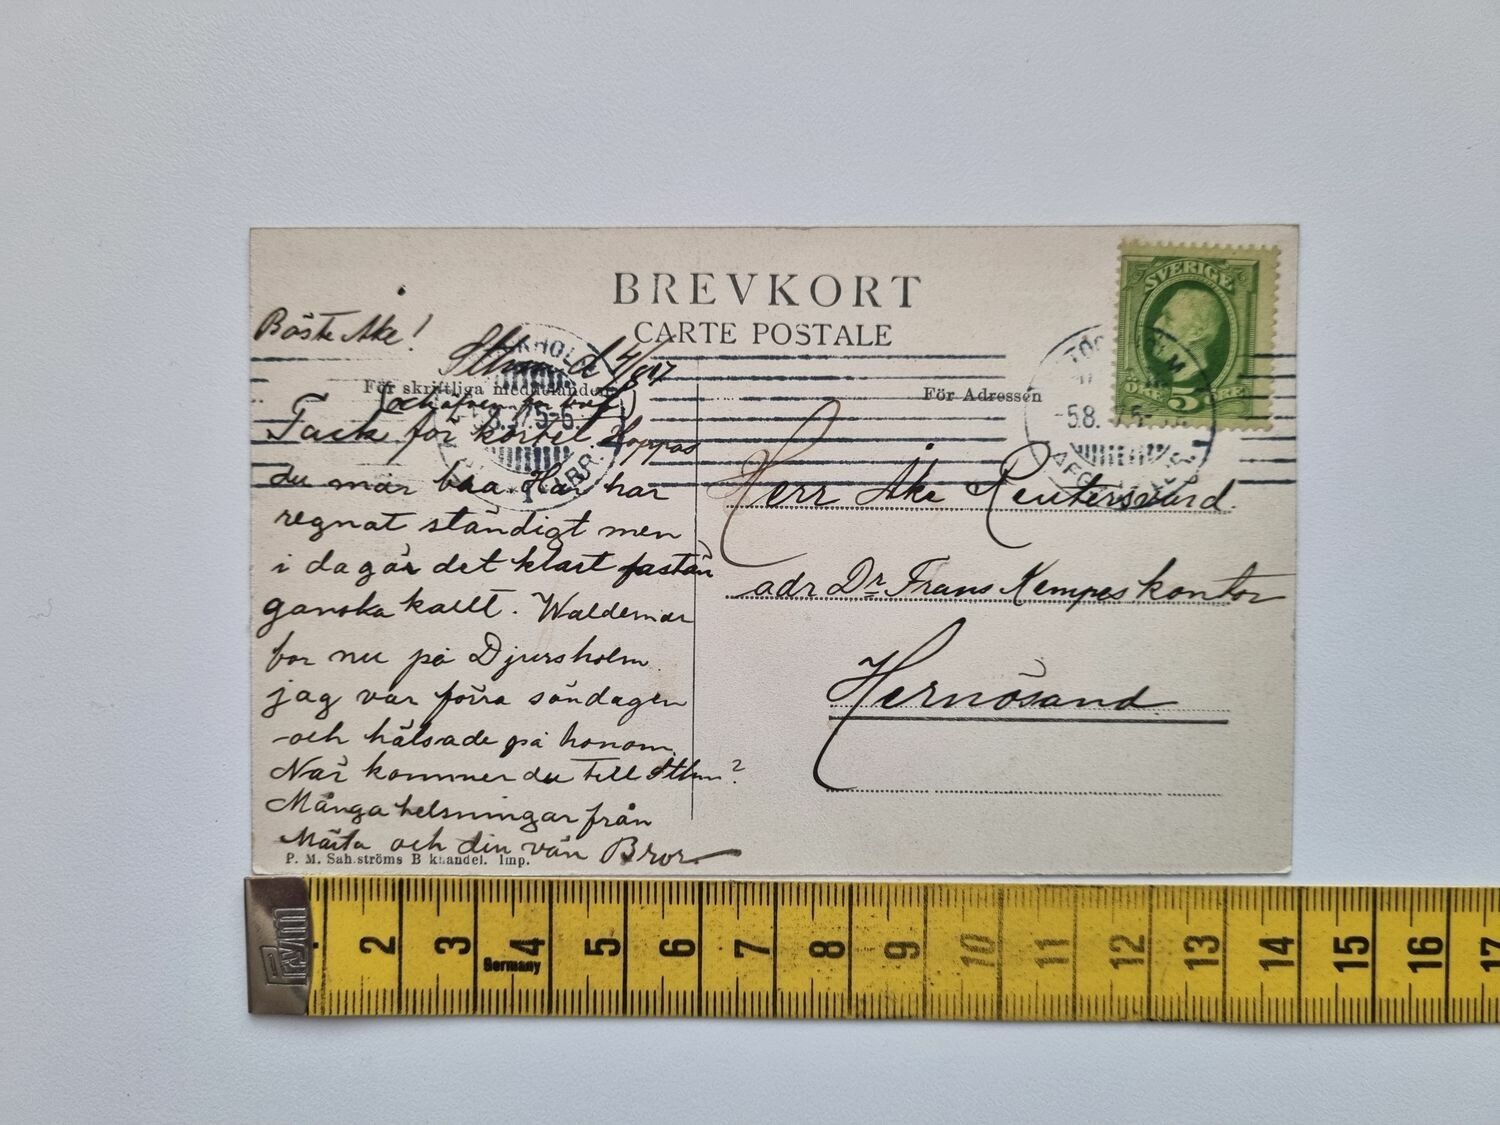 BREVKORT
CARTE POSTALE
SVERIGE
5
ÖRE
Bäste Åke!
Sthm d 4/8 07
För skriftliga meddelanden
(och äfven för bref)
Tack för kortet. Hoppas
du mår bra Här har
regnat ständigt men
i dag är det klart fastän
ganska kallt. Waldemar
bor nu på Djursholm
jag var förra söndagen
och hälsade på honom.
När kommer du till Sthm?
Många helsningar från
Märta och din vän Bror.
P. M. Sahlströms Bokhandel. Imp.
För Adressen
Herr Åke Reutersvärd.
adr Dr Frans Kempes kontor
Hernösand
Prym
Germany
2 3 4 5 6 7 8 9 10 11 12 13 14 15 16 17